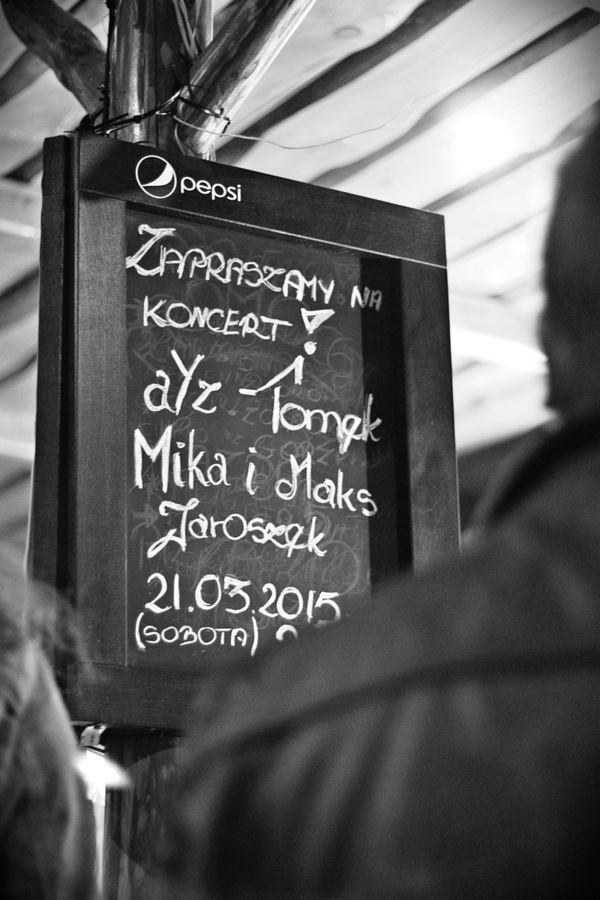 pepsi
ZAPRASZAMY NA
KONCERT!
aYz - Tomek
Mika i Maks
Jaroszek
21.03.2015
(SOBOTA)